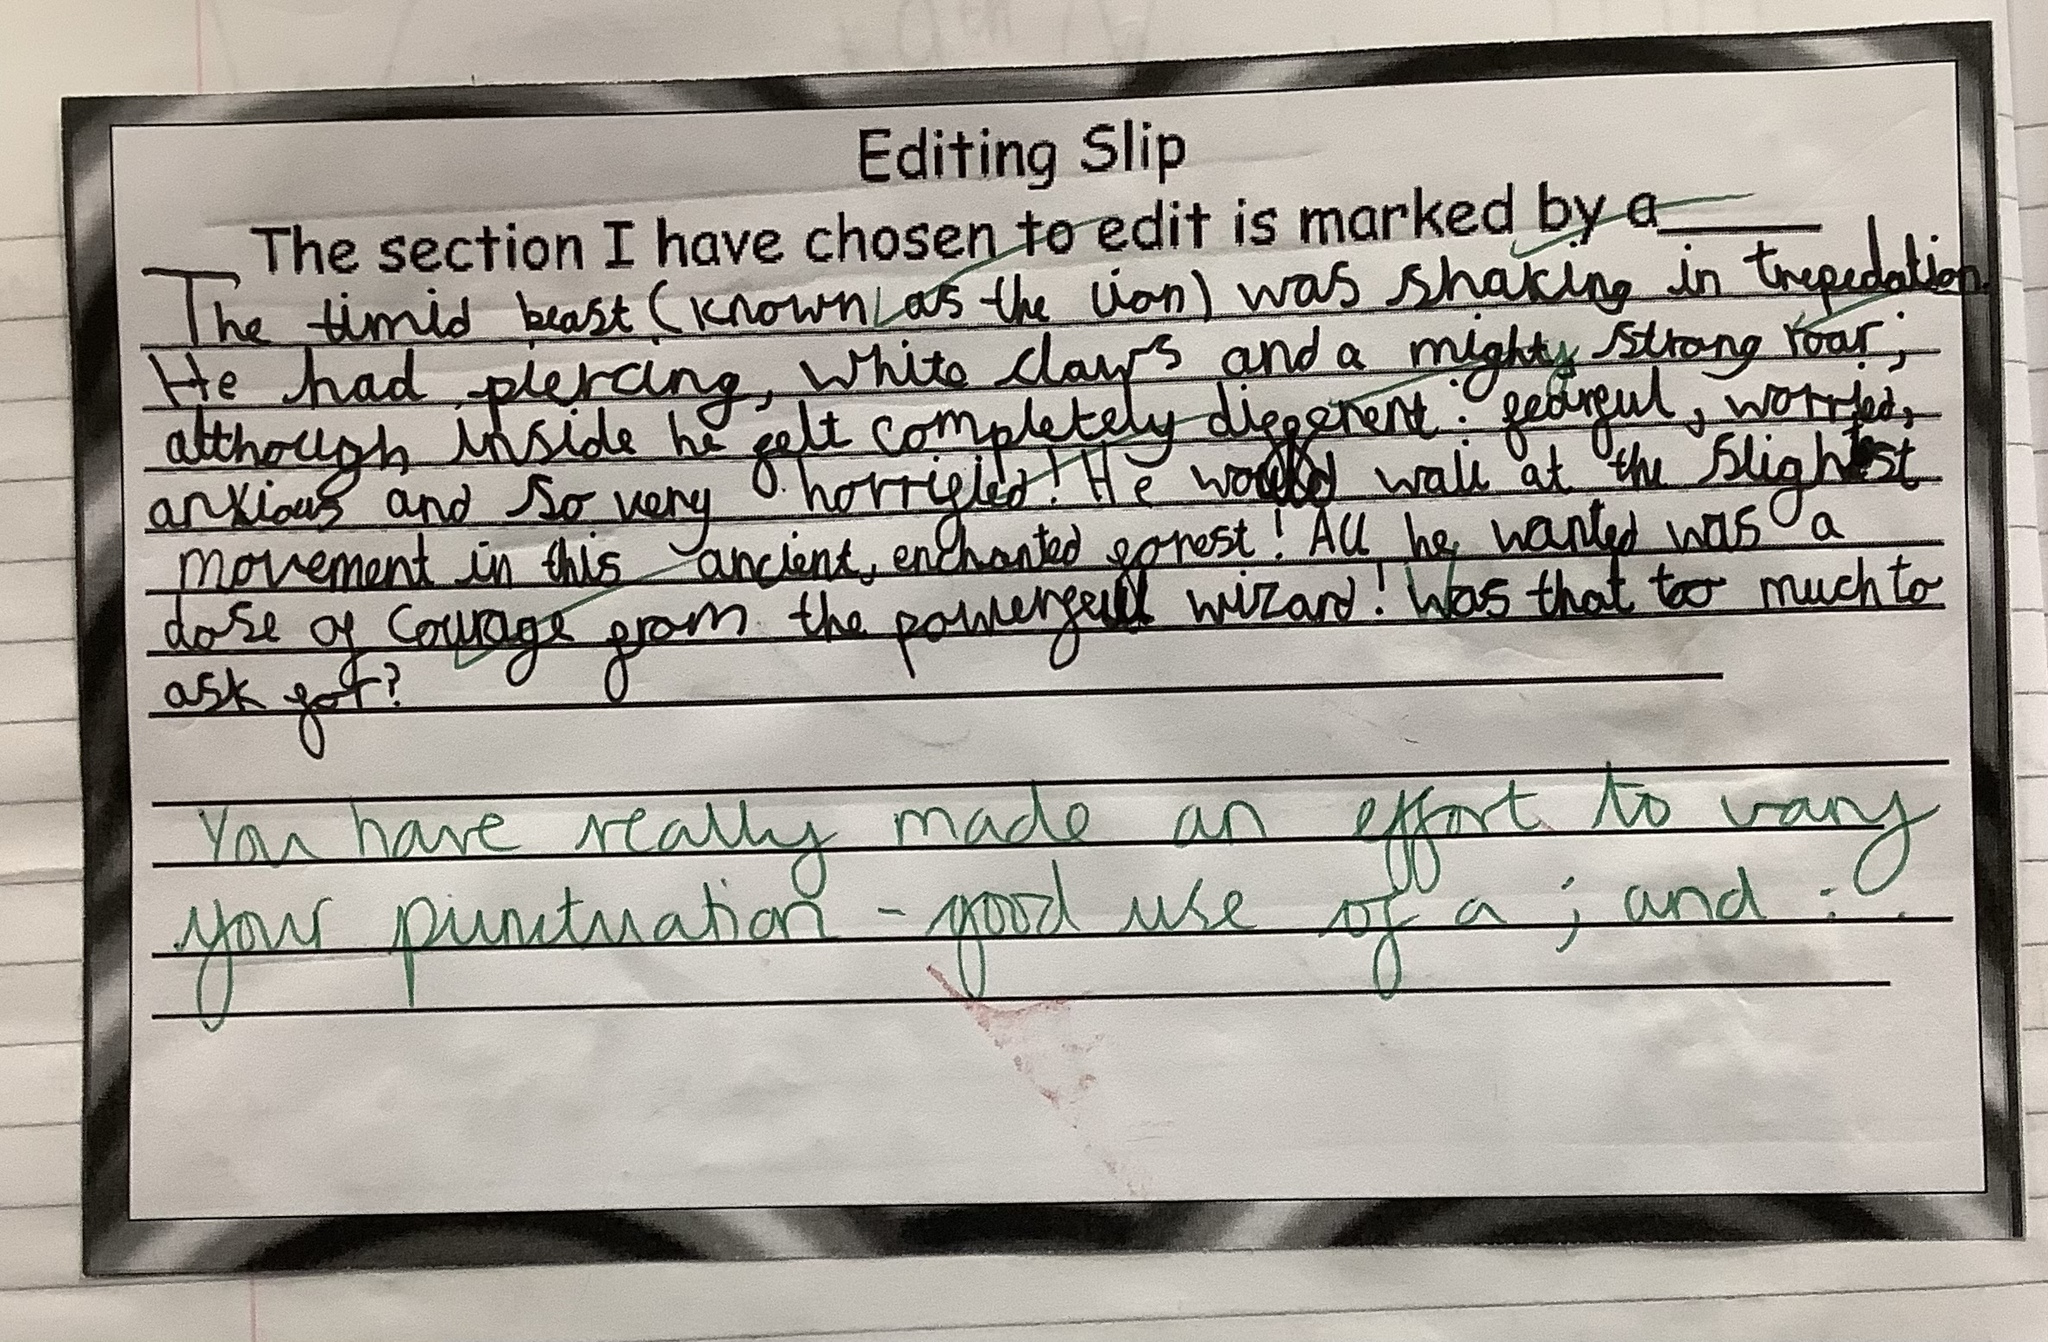 Editing Slip
The section I have chosen to edit is marked by a____
The timid beast (known as the lion) was shaking in trepedation.
He had piercing, white claws and a mighty strong roar;
although inside he felt completely different: fearful, worried,
anxious and so very horrified! He would wail at the slightest
movement in this ancient, enchanted forest! All he wanted was a
dose of courage from the powerful wizard! Was that too much to
ask for?
You have really made an effort to vary
your puntuation - good use of a ; and :.